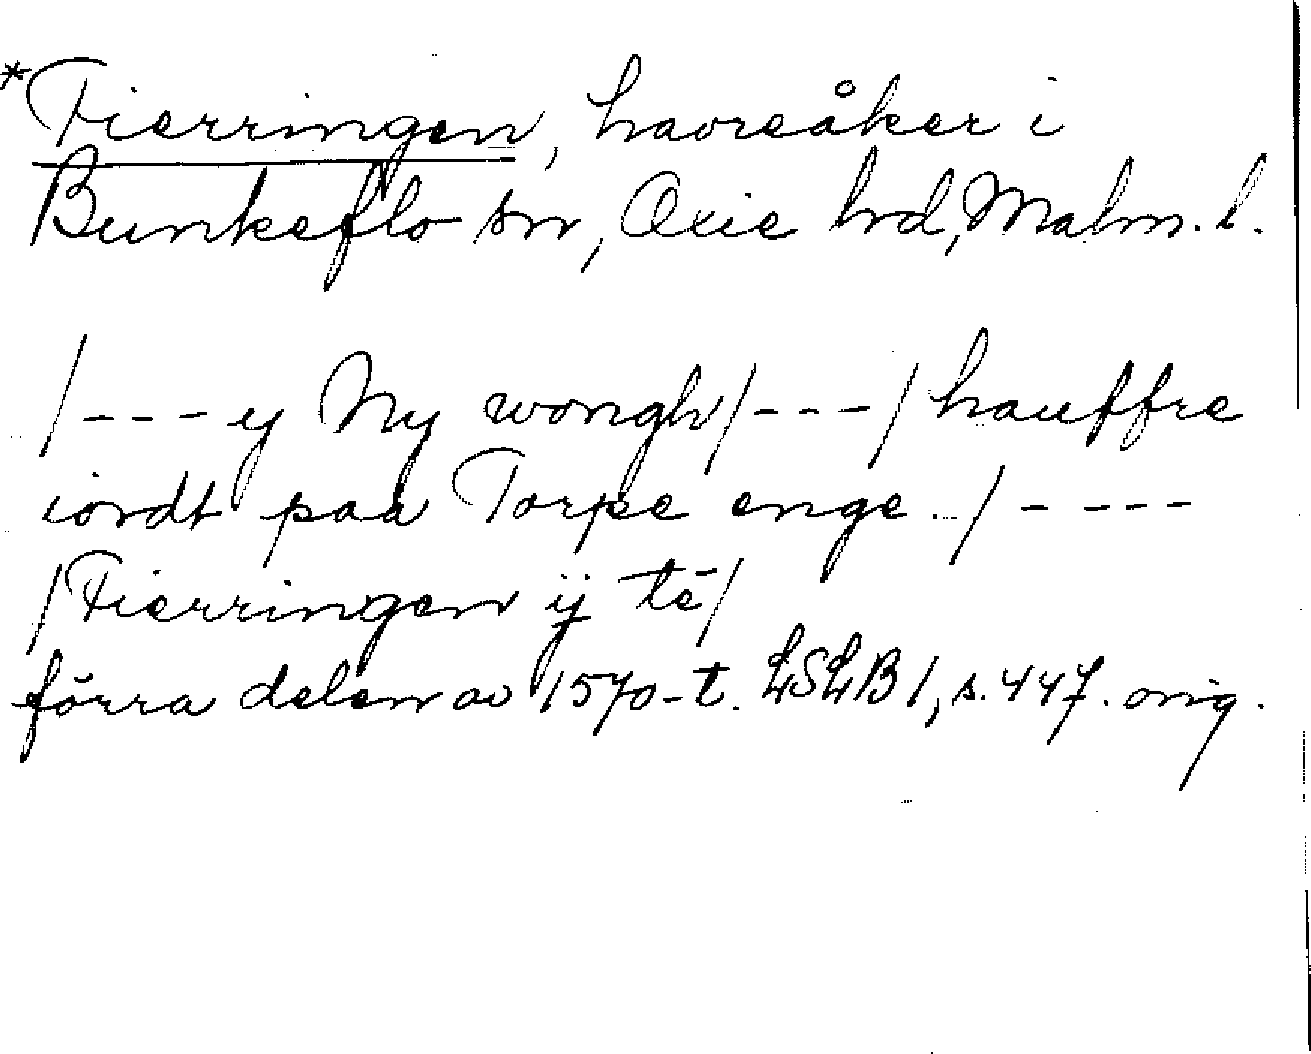 *Fierringen, havreåker i
Bunkeflo sn, Oxie hd, Malm. l.
/---y Ny wongh/---/hauffre
iordt paa Torpe enge../----
/Fierringen ij tē/
förra delen av 1570-t. LSLB1, s. 447. orig.